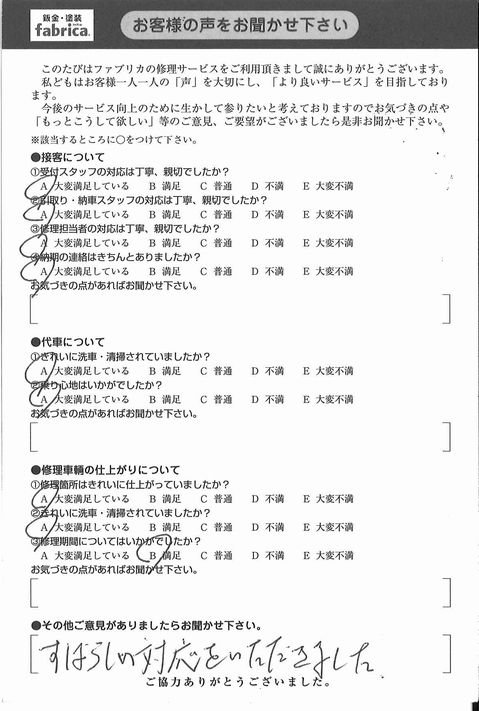 鈑金・塗装
fabrica.
お客様の声をお聞かせ下さい
このたびはファブリカの修理サービスをご利用頂きまして誠にありがとうございます。
私どもはお客様一人一人の「声」を大切にし、「より良いサービス」を目指しており
ます。
今後のサービス向上のために生かして参りたいと考えておりますのでお気づきの点や
「もっとこうして欲しい」等のご意見、ご要望がございましたら是非お聞かせ下さい。
※該当するところに○をつけて下さい。
●接客について
①受付スタッフの対応は丁寧、親切でしたか？
A 大変満足している B 満足 C 普通 D 不満 E 大変不満
②引取り・納車スタッフの対応は丁寧、親切でしたか？
A 大変満足している B 満足 C 普通 D 不満 E 大変不満
③修理担当者の対応は丁寧、親切でしたか？
A 大変満足している B 満足 C 普通 D 不満 E 大変不満
④納期の連絡はきちんとありましたか？
A 大変満足している B 満足 C 普通 D 不満 E 大変不満
お気づきの点があればお聞かせ下さい。
●代車について
①きれいに洗車・清掃されていましたか？
A 大変満足している B 満足 C 普通 D 不満 E 大変不満
②乗り心地はいかがでしたか？
A 大変満足している B 満足 C 普通 D 不満 E 大変不満
お気づきの点があればお聞かせ下さい。
●修理車輌の仕上がりについて
①修理箇所はきれいに仕上がっていましたか？
A 大変満足している B 満足 C 普通 D 不満 E 大変不満
②きれいに洗車・清掃されていましたか？
A 大変満足している B 満足 C 普通 D 不満 E 大変不満
③修理期間についてはいかがでしたか？
A 大変満足している B 満足 C 普通 D 不満 E 大変不満
お気づきの点があればお聞かせ下さい。
●その他ご意見がありましたらお聞かせ下さい。
すばらしい対応をいただきました
ご協力ありがとうございました。